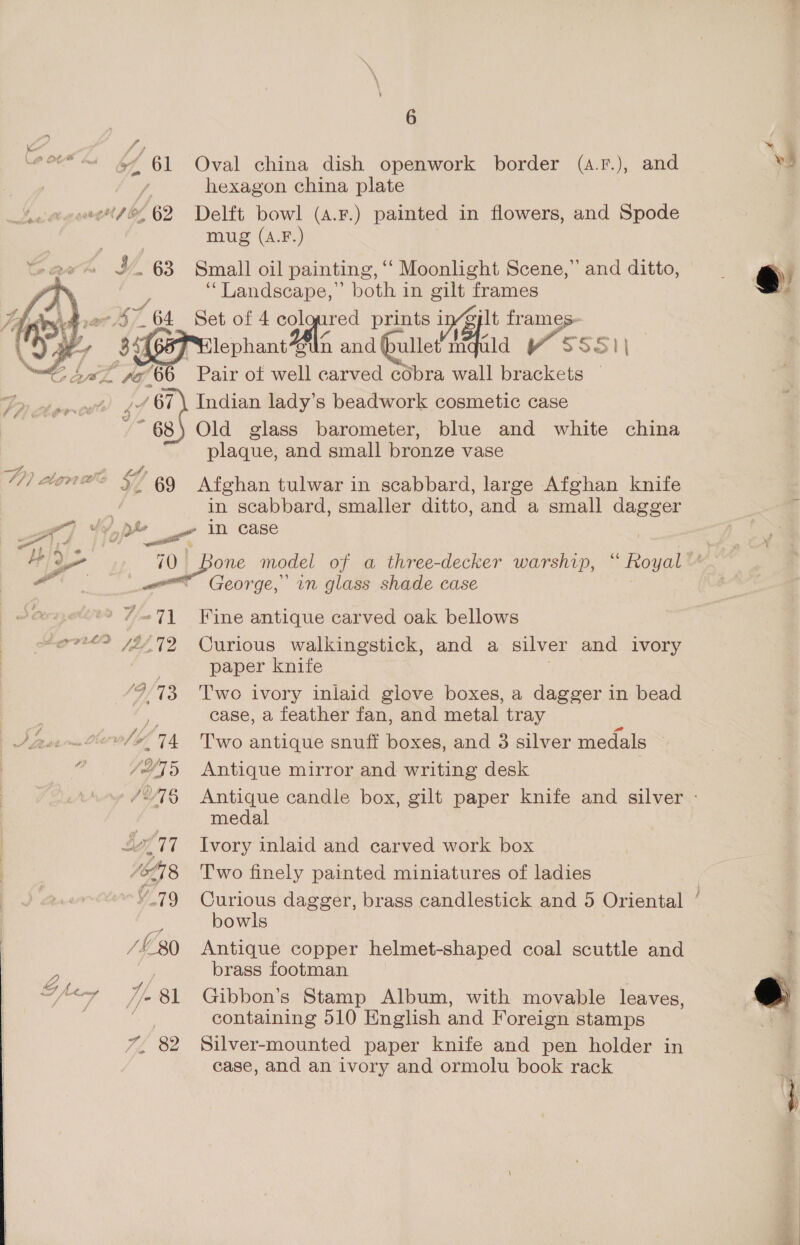 6
61 Oval china dish openwork border (A.F.), and
hexagon china plate
62 Delft bowl (A.F.) painted in flowers, and Spode
mug (A.F.)
63 Small oil painting, “Moonlight Scene,” and ditto,
“Landscape,” both in gilt frames
64 Set of 4 coloured prints in gilt frames
65 Elephant gun and bullet mould
66 Pair of well carved cobra wall brackets
67 Indian lady's beadwork cosmetic case
68 Old glass barometer, blue and white china
plaque, and small bronze vase
69 Afghan tulwar in scabbard, large Afghan knife
in scabbard, smaller ditto, and a small dagger
in case
70 Bone model of a three-decker warship, “Royal
George,” in glass shade case
71 Fine antique carved oak bellows
72 Curious walkingstick, and a silver and ivory
paper knife
73 Two ivory inlaid glove boxes, a dagger in bead
case, a feather fan, and metal tray
74 Two antique snuff boxes, and 3 silver medals
75 Antique mirror and writing desk
76 Antique candle box, gilt paper knife and silver
medal
77 Ivory inlaid and carved work box
78 Two finely painted miniatures of ladies
79 Curious dagger, brass candlestick and 5 Oriental
bowls
80 Antique copper helmet-shaped coal scuttle and
brass footman
81 Gibbon's Stamp Album, with movable leaves,
containing 510 English and Foreign stamps
82 Silver-mounted paper knife and pen holder in
case, and an ivory and ormolu book rack